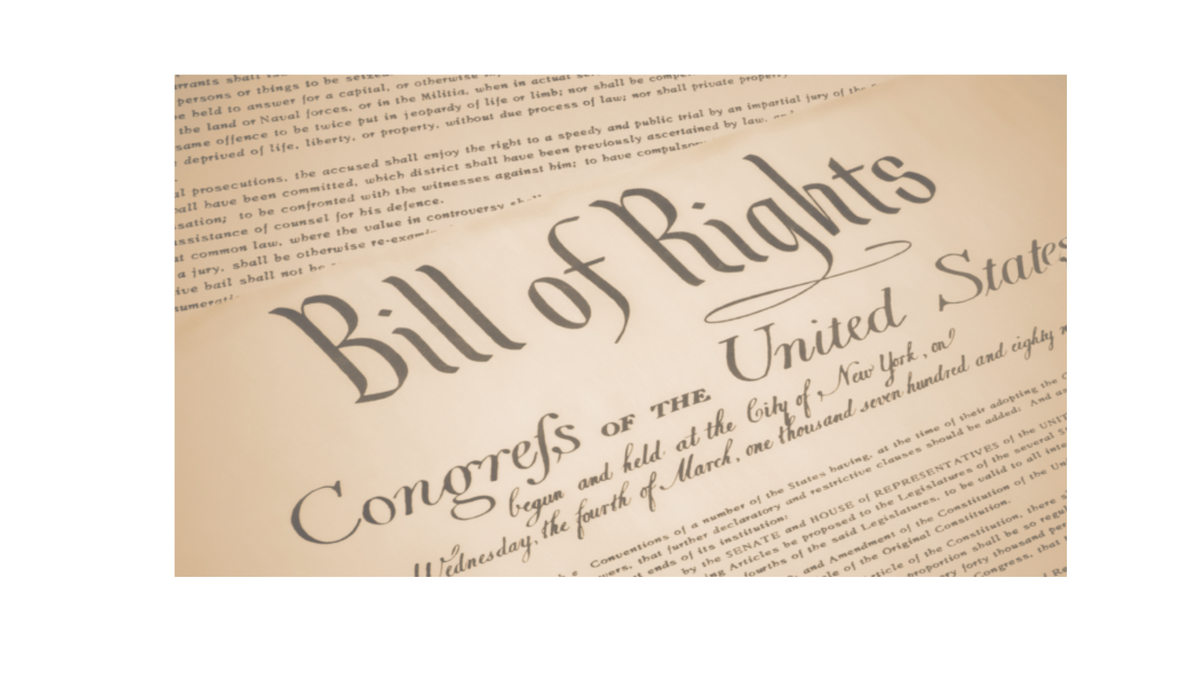 rrants shall
persons or things to be seized
be held to answer for a capital, or otherwise
the land or Naval forces, or in the Militia, when in actual
same offence to be twice put in jeopardy of life or limb; nor shall be
deprived of life, liberty, or property, without due process of law; nor shall private
al prosecutions, the accused shall enjoy the right to a speedy and public trial by an impartial jury of the
hall have been committed, which district shall have been previously ascertained by law,
sation; to be confronted with the witnesses against him; to have compulsory
ssistance of counsel for his defence.
at common law, where the value in controversy
a jury, shall be otherwise
ive bail shall not be
Bill of Rights
Congreſs OF THE United States
begun and held at the City of New York, on
Wednesday, the fourth of March, one thousand seven hundred and eighty
Conventions of a number of the States having, at the time of their adopting the
wers, that further declaratory and restrictive clauses should be added: And
ends of its institution:
by the SENATE and HOUSE of REPRESENTATIVES of the
ing Articles be proposed to the Legislatures of the several
fourths of the said Legislatures, to be valid to all
and Amendment of the Constitution of the
le of the Original Constitution.
ticle of the Constitution, there
proportion shall be so
ery forty thousand
Congress, that